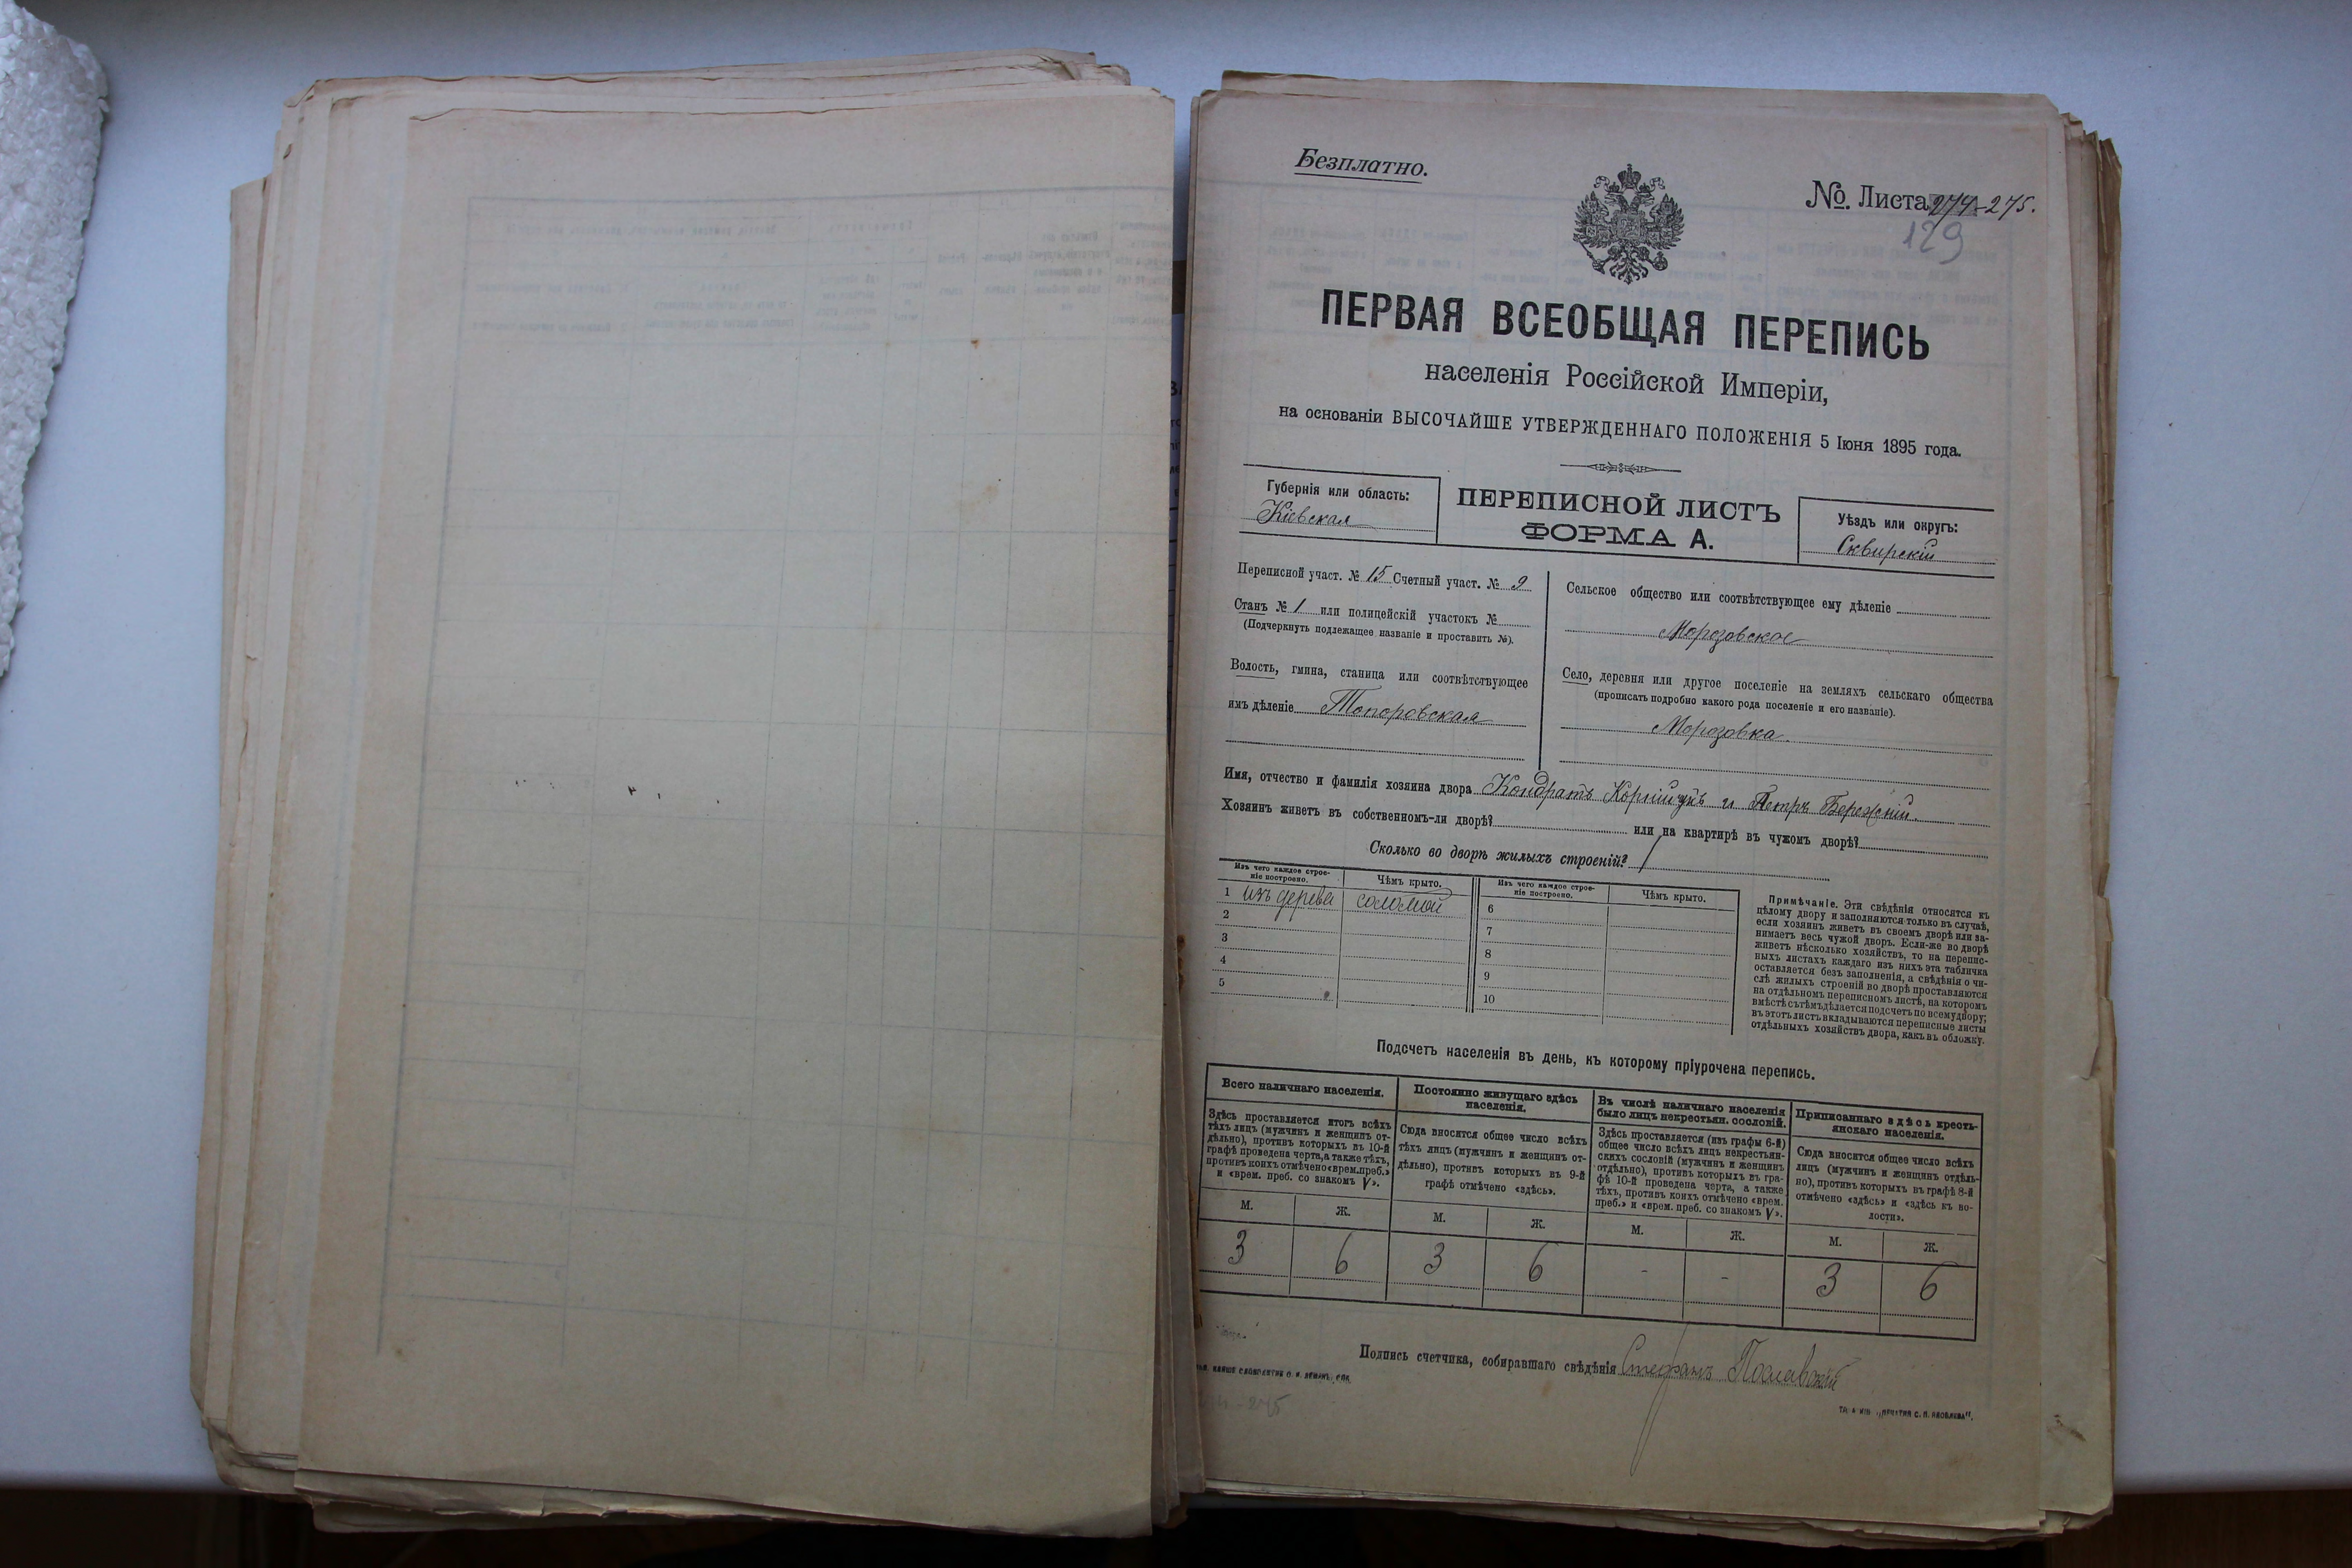 Безплатно.
№. Листа 274-275.
129
ПЕРВАЯ ВСЕОБЩАЯ ПЕРЕПИСЬ
населенія Россійской Имперіи,
на основаніи ВЫСОЧАЙШЕ УТВЕРЖДЕННАГО ПОЛОЖЕНІЯ 5 Іюня 1895 года.
Губернія или область:
Кіевская
ПЕРЕПИСНОЙ ЛИСТЪ
ФОРМА А.
Уѣздъ или округъ:
Сквирскій
Переписной участ. № 15 Счетный участ. № 9
Станъ № 1 или полицейскій участокъ №
(Подчеркнуть подлежащее названіе и проставить №).
Волость, гмина, станица или соотвѣтствующее
имъ дѣленіе Топоровская
Сельское общество или соотвѣтствующее ему дѣленіе
Морозовское
Село, деревня или другое поселеніе на земляхъ сельскаго общества
(прописать подробно какого рода поселеніе и его названіе).
Морозовка.
Имя, отчество и фамилія хозяина двора Кондратъ Корнійчукъ и Петръ Бережній.
Хозяинъ живетъ въ собственномъ-ли дворѣ? или на квартирѣ въ чужомъ дворѣ?
Сколько во дворѣ жилыхъ строеній? 1
Изъ чего каждое строе-
ніе построено.
Чѣмъ крыто.
Изъ чего каждое строе-
ніе построено.
Чѣмъ крыто.
1 изъ дерева соломой
2
3
4
5
6
7
8
9
10
Примѣчаніе. Эти свѣдѣнія относятся къ
цѣлому двору и заполняются только въ случаѣ,
если хозяинъ живетъ въ своемъ дворѣ или за-
нимаетъ весь чужой дворъ. Если-же во дворѣ
живетъ нѣсколько хозяйствъ, то на перепис-
ныхъ листахъ каждаго изъ нихъ эта табличка
оставляется безъ заполненія, а свѣдѣнія о чи-
слѣ жилыхъ строеній во дворѣ проставляются
на отдѣльномъ переписномъ листѣ, на которомъ
вмѣстѣ съ тѣмъ дѣлается подсчетъ по всему двору;
въ этотъ листъ вкладываются переписные листы
отдѣльныхъ хозяйствъ двора, какъ въ обложку.
Подсчетъ населенія въ день, къ которому пріурочена перепись.
Всего наличнаго населенія.
Здѣсь проставляется итогъ всѣхъ
тѣхъ лицъ (мужчинъ и женщинъ от-
дѣльно), противъ которыхъ въ 10-й
графѣ проведена черта, а также тѣхъ,
противъ коихъ отмѣчено «врем. преб.»
и «врем. преб. со знакомъ V».
Постоянно живущаго здѣсь
населенія.
Сюда вносится общее число всѣхъ
тѣхъ лицъ (мужчинъ и женщинъ от-
дѣльно), противъ которыхъ въ 9-й
графѣ отмѣчено «здѣсь».
Въ числѣ наличнаго населенія
было лицъ некрестьян. сословій.
Здѣсь проставляется (изъ графы 6-й)
общее число всѣхъ лицъ некрестьян-
скихъ сословій (мужчинъ и женщинъ
отдѣльно), противъ которыхъ въ гра-
фѣ 10-й проведена черта, а также
тѣхъ, противъ коихъ отмѣчено «врем.
преб.» и «врем. преб. со знакомъ V».
Приписаннаго здѣсь кресть-
янскаго населенія.
Сюда вносится общее число всѣхъ
лицъ (мужчинъ и женщинъ отдѣль-
но), противъ которыхъ въ графѣ 8-й
отмѣчено «здѣсь» и «здѣсь къ во-
лости».
М. Ж. М. Ж. М. Ж. М. Ж.
3 6 3 6 - - 3 6
Подпись счетчика, собиравшаго свѣдѣнія Стефанъ